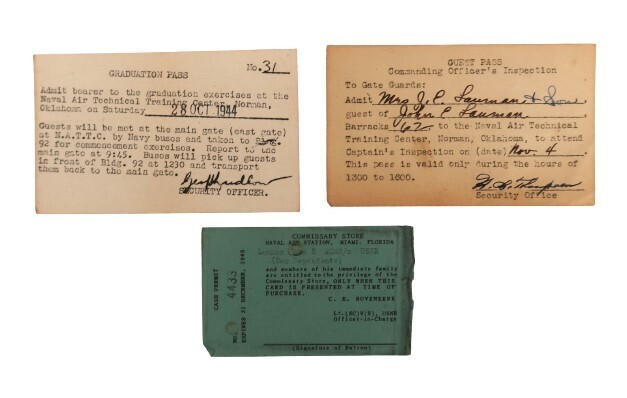 No. 31
GRADUATION PASS
Admit bearer to the graduation exercises at the
Naval Air Technical Training Center, Norman,
Oklahoma on Saturday 28 OCT 1944
Guests will be met at the main gate (east gate)
at N.A.T.T.C. by Navy buses and taken to Bldg.
92 for commencement exercises. Report to the
main gate at 9:45. Buses will pick up guests
in front of Bldg. 92 at 1230 and transport
them back to the main gate.
SECURITY OFFICER.
GUEST PASS
Commanding Officer's Inspection
To Gate Guards:
Admit Mrs J. C. Lauman & Son
guest of John C Lauman
Barracks 62 to the Naval Air Technical
Training Center, Norman, Oklahoma, to attend
Captain's Inspection on (date) Nov. 4.
This pass is valid only during the hours of
1300 to 1600.
Security Office
COMMISSARY STORE
NAVAL AIR STATION, MIAMI, FLORIDA
USNR
(Two Dependents)
and members of his immediate family
are entitled to the privilege of the
Commissary Store, ONLY WHEN THIS
CARD IS PRESENTED AT TIME OF
PURCHASE.
C. E.
Lt.(SC)V(S), USNR
Officer-in-Charge
(Signature of Patron)
CASH PERMIT
No. 4433
EXPIRES 31 DECEMBER, 1945